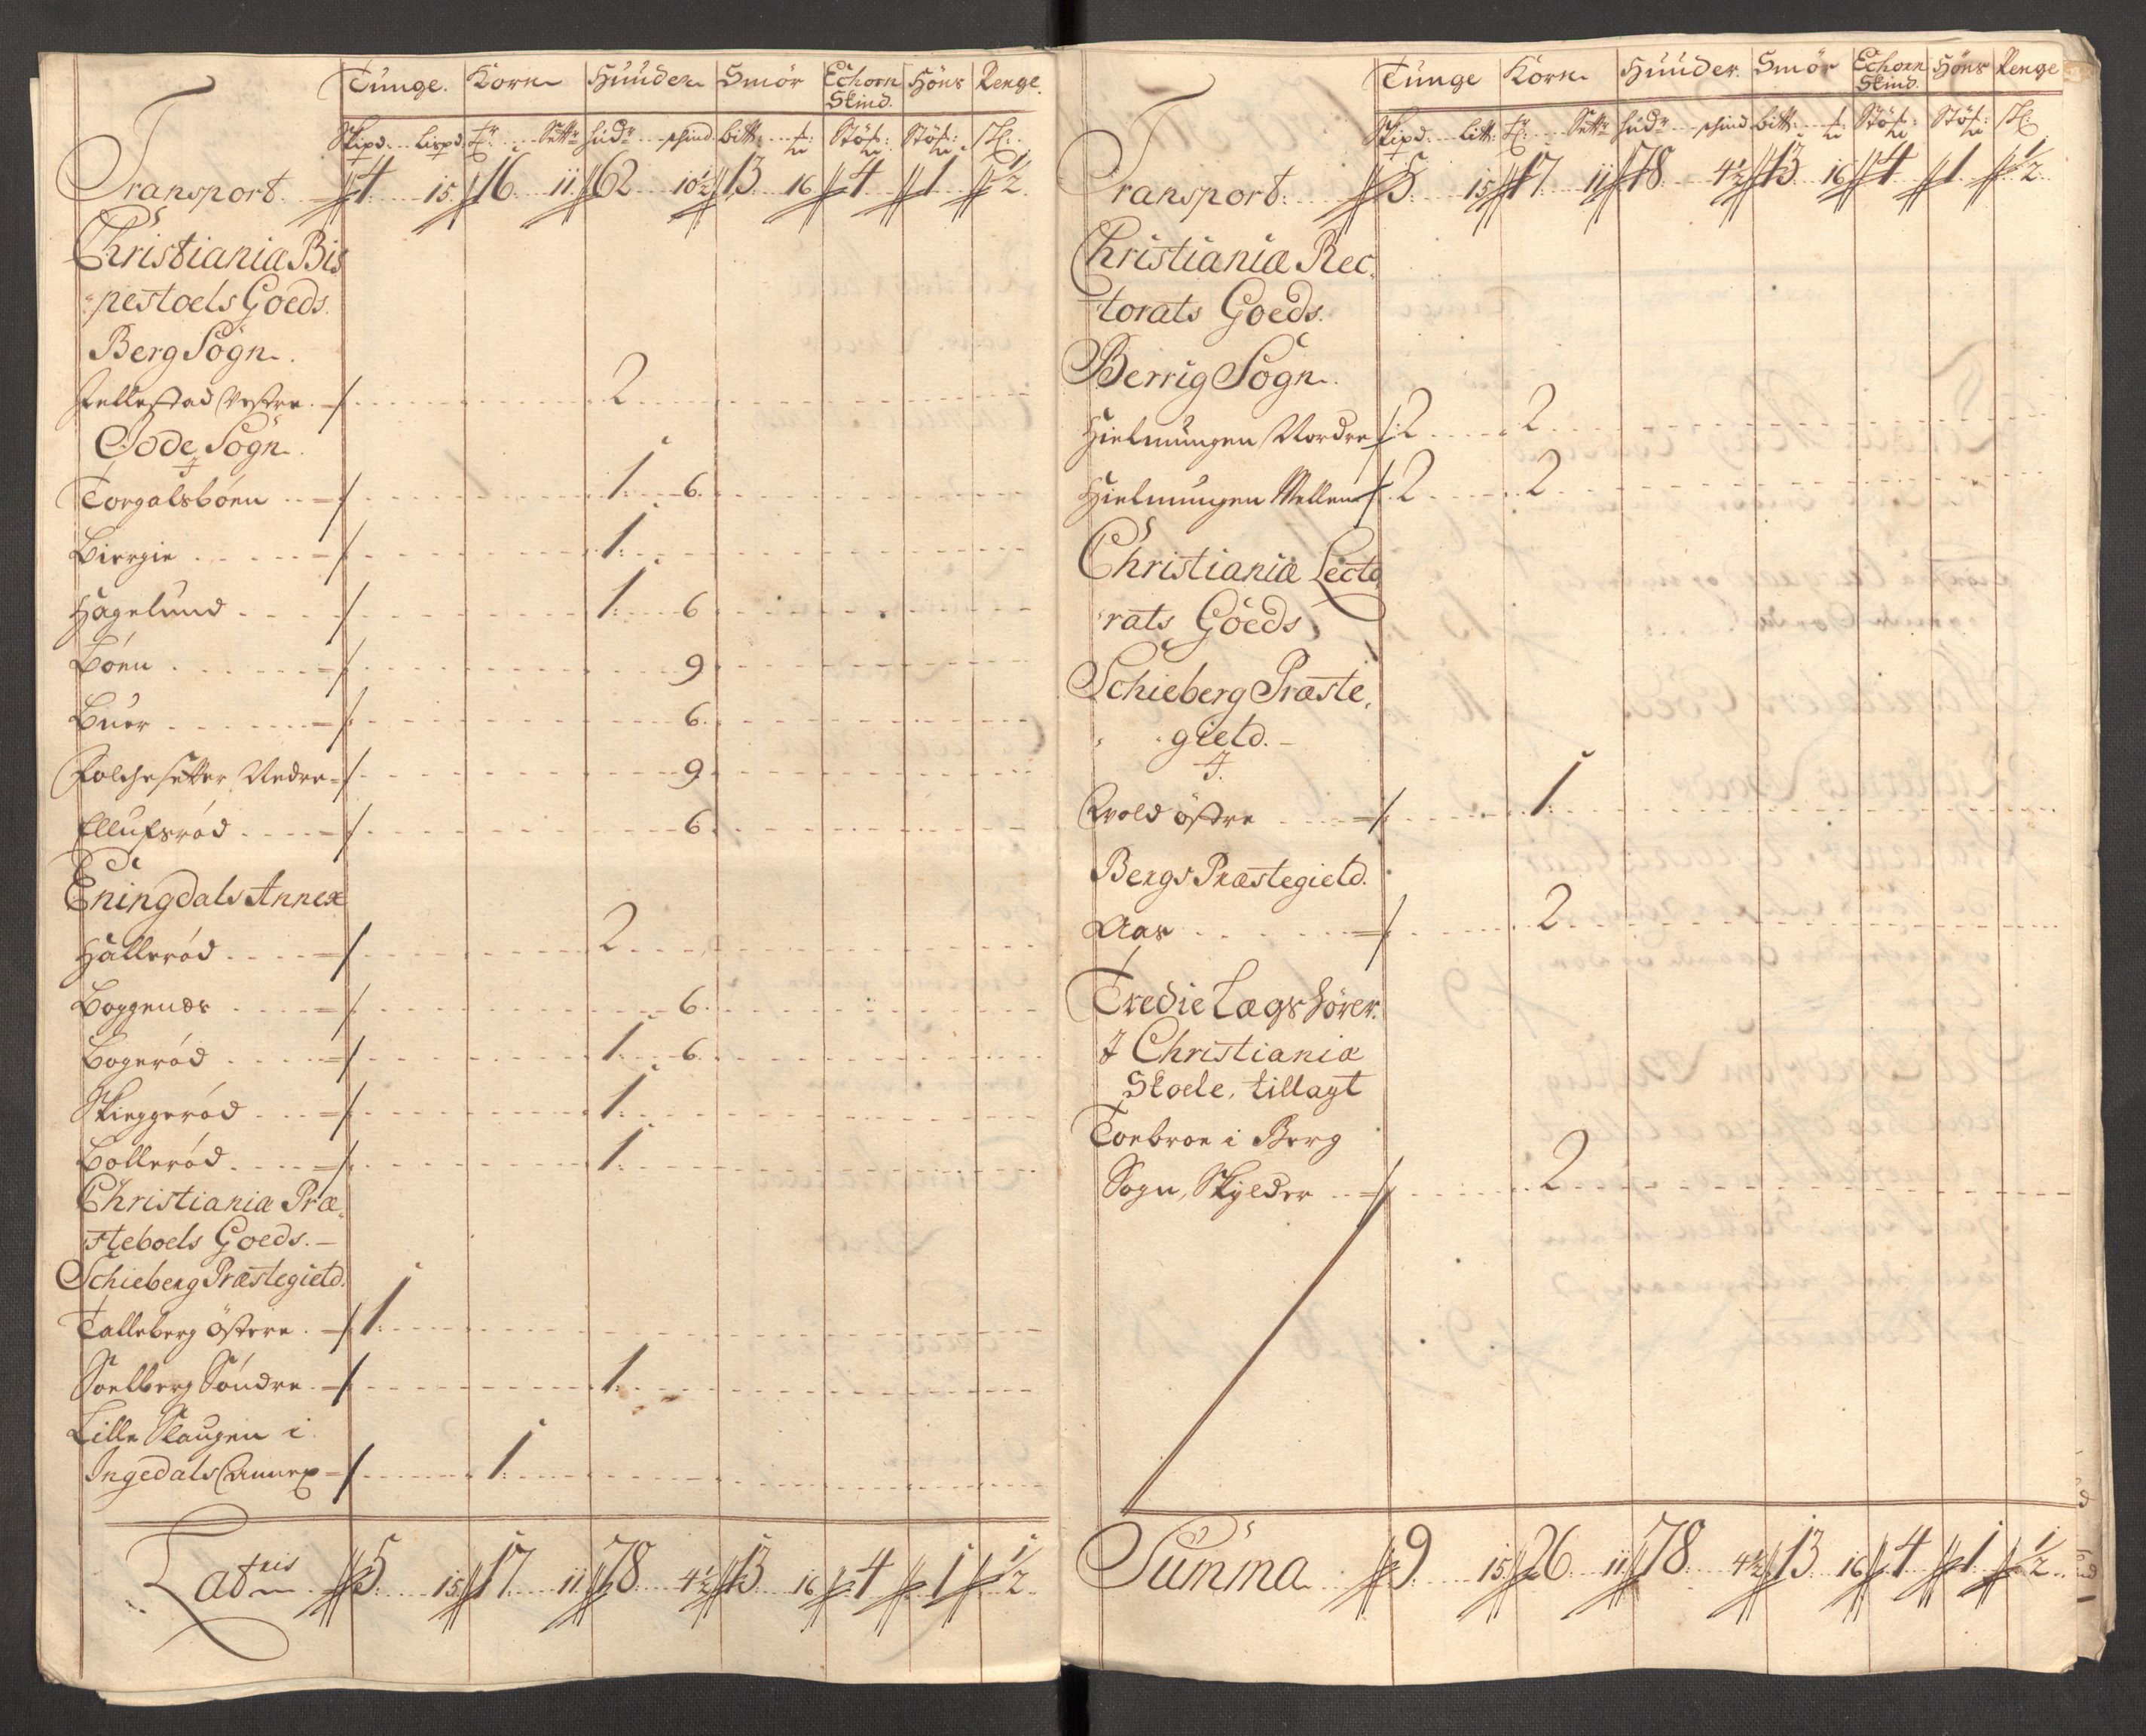 Tunge. Korn Huuder Smör Echorn Skind. Höns Penge.
Skipd. Lispd. Tr. Settr hudr schind bitt: Stöf: Stöf:
Transport. 4 15 16 11 62 10½ 13 16 4 1 ½
Christiania Bis
pestoels Goeds.
Berg Sogn.
Fellestad Vestre. 2
Jode Sogn.
Torgalsböen 1 6.
Biergie 1
Hagelund 1 6
Böen 9
Buer 6.
Folchesetter Nedre 9
Ellufsröd 6
Eningdals Annex
Halleröd 2
Boggenæs 6.
Bogeröd 1 6.
Skieggeröd 1
Bolleröd 1
Christiania Præ
steboels Goeds.
Schieberg Præstegield.
Talleberg östere 1
Soelberg Söndre 1
Lille Skaugen i
Ingedals Annex 1
Latris 5 15 17 11 78 4½ 13 16 4 1 ½
Tunge Korn Huuder. Smör Echorn Skind. Höns Penge
Skipd. Litt: Tr: Settr hudr schind bitt: Stöf: Stöf:
Transport. 5 15 17 11 78 4½ 13 16 4 1 ½
Christiania Rec
torats Goeds.
Berrig Sogn.
Hielmungen Nordre 2 2
Hielmungen Mellem 2 2
Christiania Lecto
rats Goeds
Schieberg Præste,
gield.
Qvold östre 1
Bergs Præstegield.
Aas 2
Tredie Lags hörer.
J Christiania
Skoele, tillagt
Torbroe i Berg
Sogn, Skylder 2
Summa 9 15 26 11 78 4½ 13 16 4 1 ½